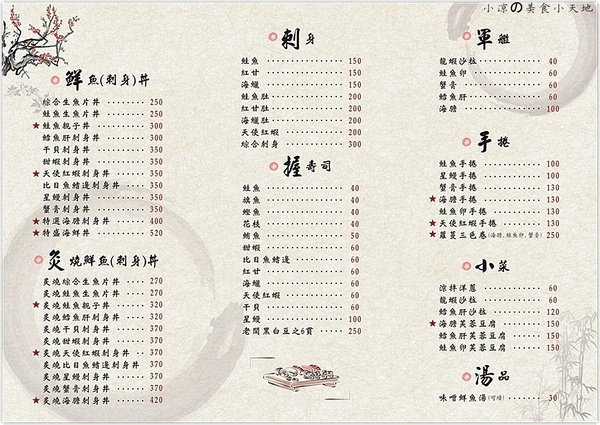 小凉の美食小天地
鮮魚(刺身)丼
綜合生魚片丼 ······· 250
鮭魚生魚片丼 ······· 250
★鮭魚親子丼 ········ 300
鱈魚肝刺身丼 ······· 300
干貝刺身丼 ········ 350
甜蝦刺身丼 ········ 350
★天使紅蝦刺身丼 ······ 350
比目魚鰭邊刺身丼 ····· 350
星鰻刺身丼 ········ 350
蟹膏刺身丼 ········ 350
★特選海膽刺身丼 ······ 400
★特盛海鮮丼 ········ 520
炙燒鮮魚(刺身)丼
炙燒綜合生魚片丼 ····· 270
炙燒鮭魚生魚片丼 ····· 270
★炙燒鮭魚親子丼 ······ 320
炙燒鱈魚肝刺身丼 ····· 320
炙燒干貝刺身丼 ······ 370
炙燒甜蝦刺身丼 ······ 370
★炙燒天使紅蝦刺身丼 ···· 370
炙燒比目魚鰭邊刺身丼 ··· 370
炙燒星鰻刺身丼 ······ 370
炙燒蟹膏刺身丼 ······ 370
★炙燒海膽刺身丼 ······ 420
刺身
鮭魚 ············ 150
紅甘 ············ 150
海鱺 ············ 150
鮭魚肚 ··········· 200
紅甘肚 ··········· 200
海鱺肚 ··········· 200
天使紅蝦 ·········· 200
綜合刺身 ·········· 300
握壽司
鮭魚 ············ 40
旗魚 ············ 40
鰹魚 ············ 40
花枝 ············ 40
鮪魚 ············ 50
甜蝦 ············ 60
比目魚鰭邊 ········· 60
紅甘 ············ 60
海鱺 ············ 60
天使紅蝦 ·········· 60
干貝 ············ 60
星鰻 ············ 100
老闆黑白豆之6貫 ······ 250
軍艦
龍蝦沙拉 ·········· 40
鮭魚卵 ··········· 60
蟹膏 ············ 60
鱈魚肝 ··········· 60
海膽 ············ 100
手捲
鮭魚手捲 ·········· 100
星鰻手捲 ·········· 100
蟹膏手捲 ·········· 100
★海膽手捲 ·········· 130
鮭魚卵手捲 ········· 130
★天使紅蝦手捲 ········ 130
★蘿蔓三色卷(海膽,鮭魚卵,蟹膏) 250
小菜
涼拌洋蔥 ·········· 60
龍蝦沙拉 ·········· 60
鱈魚肝沙拉 ········· 120
★海膽芙蓉豆腐 ········ 150
鱈魚肝芙蓉豆腐 ······· 150
鮭魚卵芙蓉豆腐 ······· 150
湯品
味噌鮮魚湯(可續) ······ 30